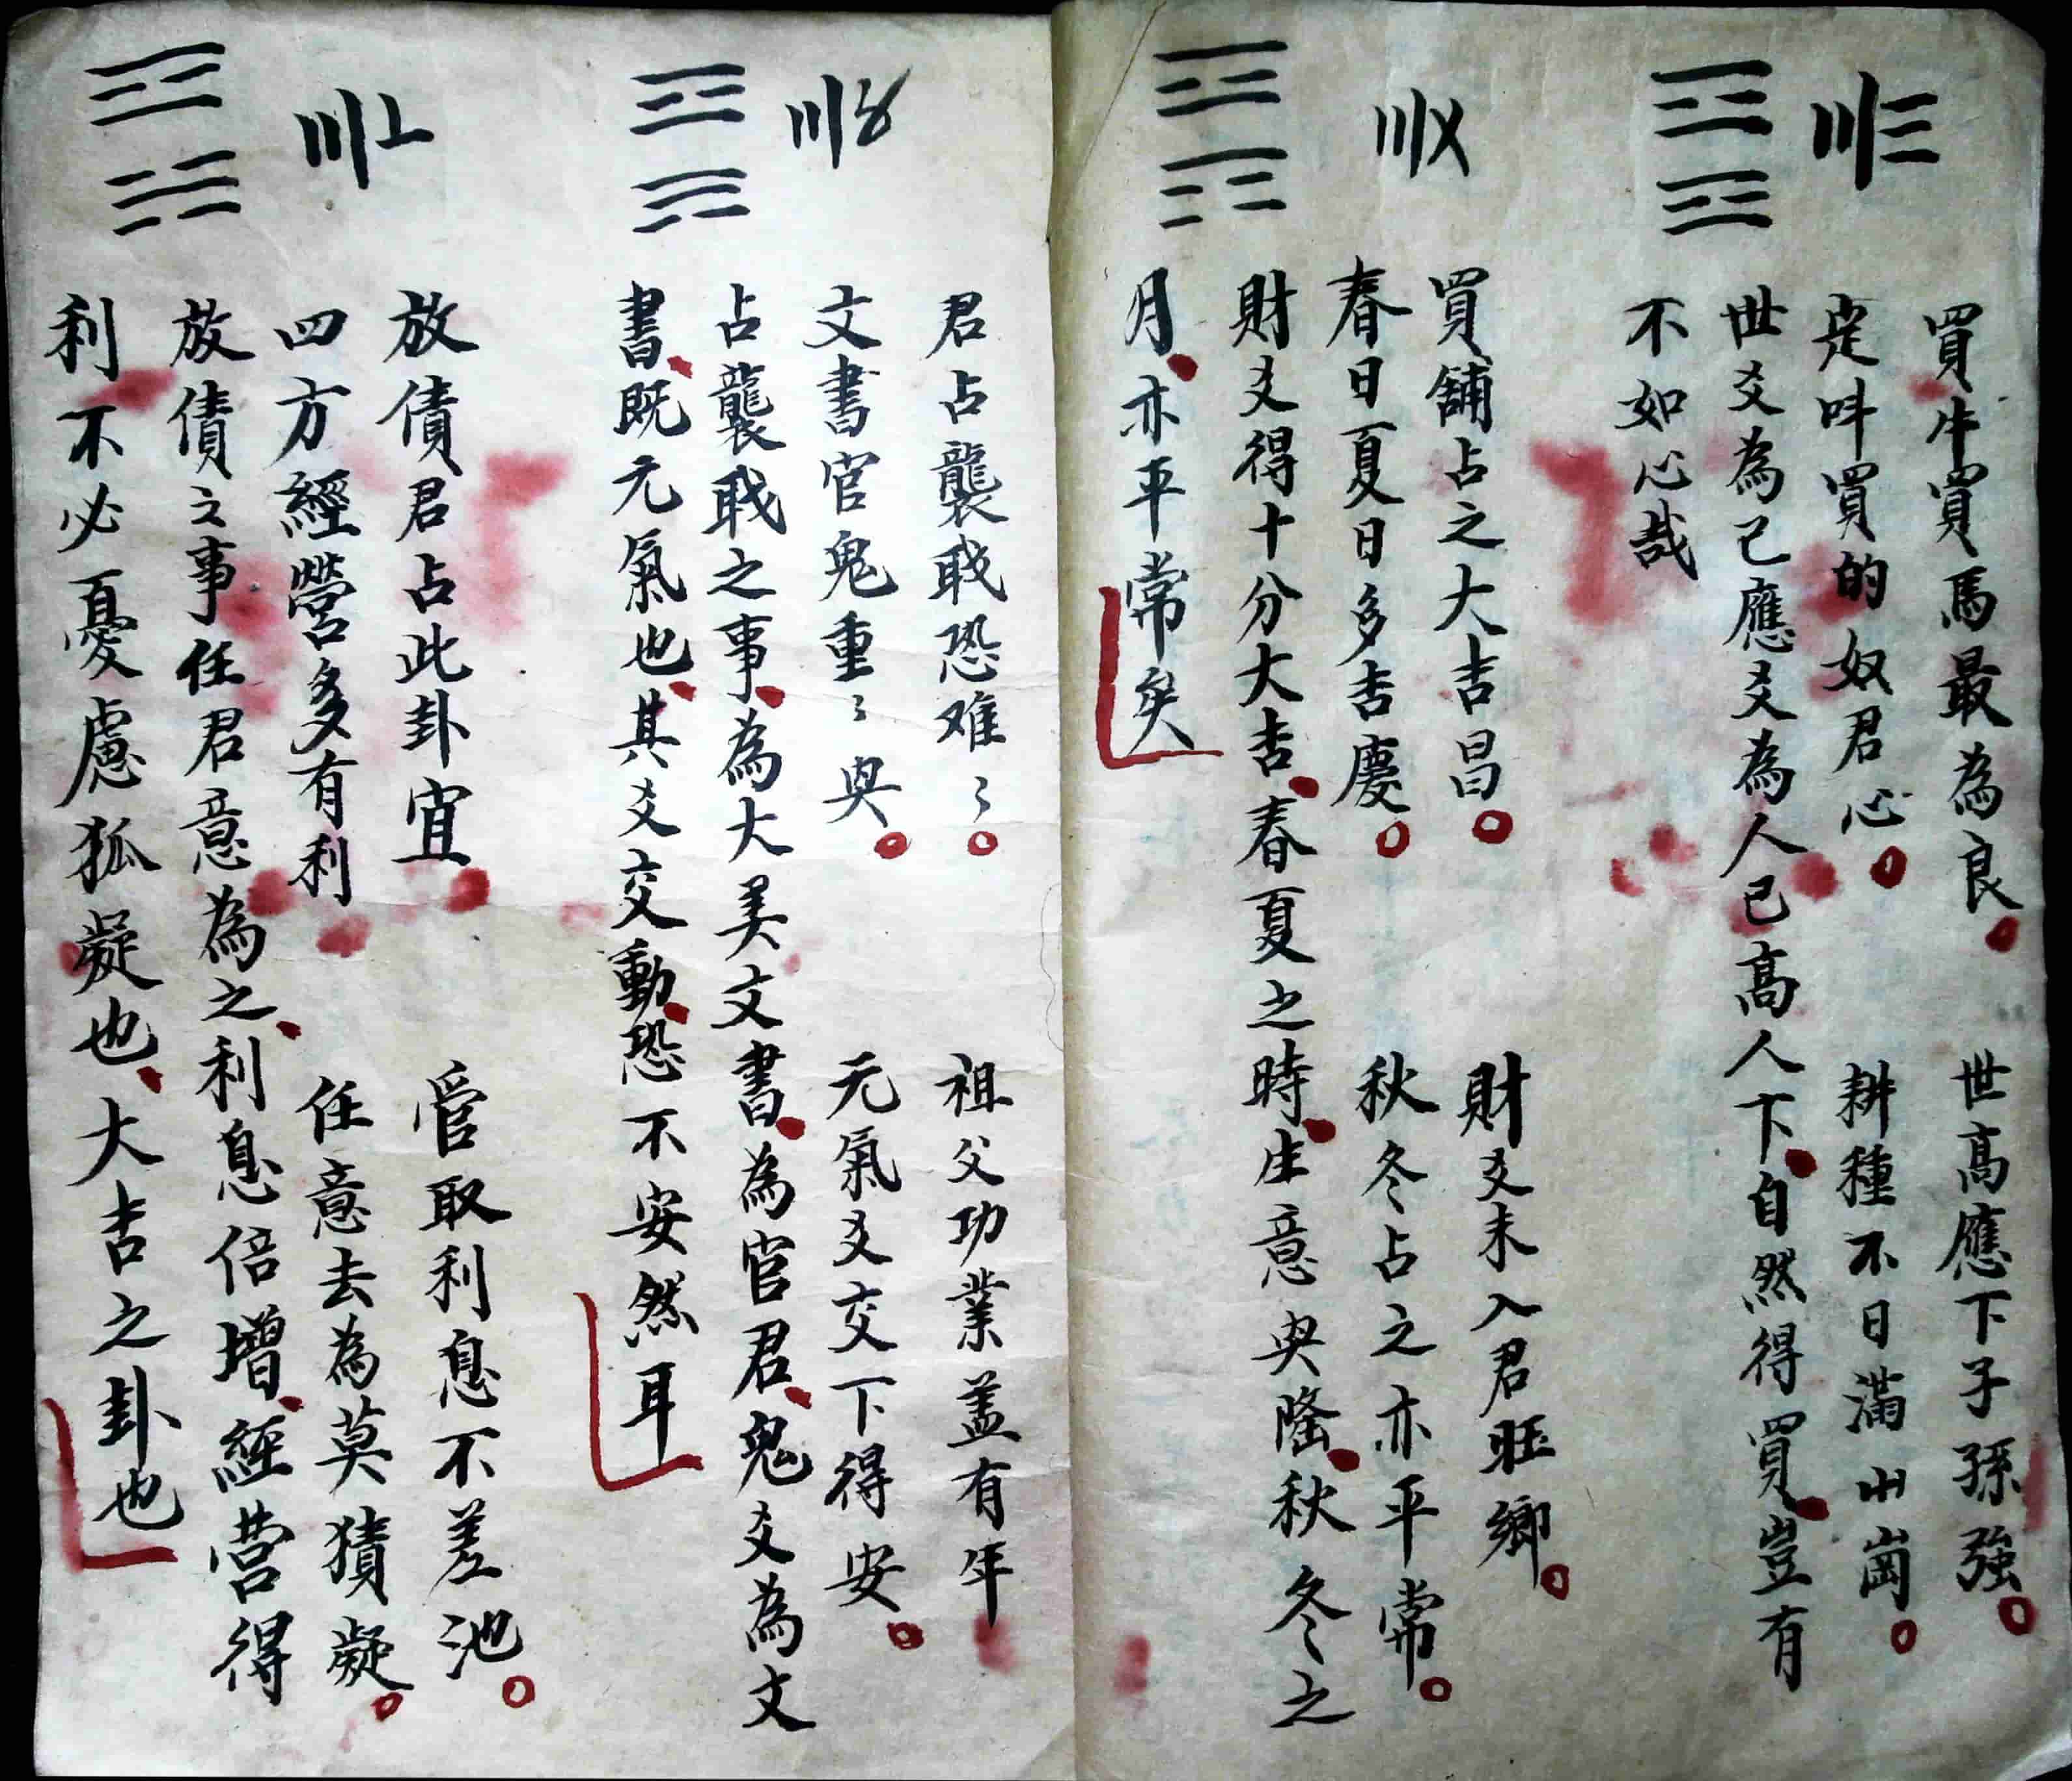 〣三
買牛買馬最為良 世高應下子孫強
是呌買的奴君心 耕種不日滿山崗
世爻為己應爻為人己高人下自然得買豈有
不如心哉
〣〤
買舖占之大吉昌 財爻未入君旺鄉
春日夏日多吉慶 秋冬占之亦平常
財爻得十分大吉春夏之時生意興隆秋冬之
月亦平常矣
〣〥
君占襲职恐难〻 祖父功業盖有年
文書官鬼重〻興 元氣爻交下得安
占襲职之事為大美文書為官君鬼爻為文
書既元氣也其爻交動恐不安然耳
〣〦
放債君占此卦宜 管取利息不差池
四方經營多有利 任意去為莫猜凝
放債之事任君意為之利息倍增經营得
利不必憂慮狐凝也大吉之卦也